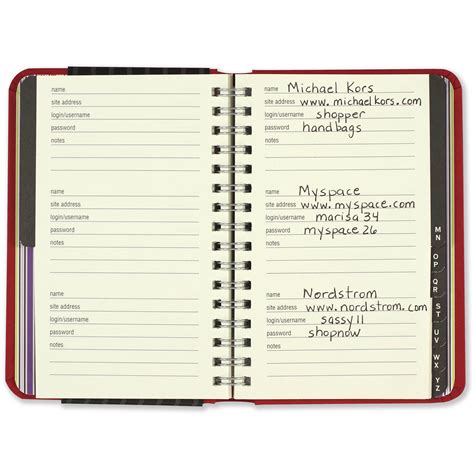 name
site address
login/username
password
notes
name
site address
login/username
password
notes
name
site address
login/username
password
notes
name Michael Kors
site address www.michaelkors.com
login/username shopper
password handbags
notes
name Myspace
site address www.myspace.com
login/username marisa 34
password myspace 26
notes
name Nordstrom
site address www.nordstrom.com
login/username sassy11
password shopnow
notes
MN
OP
QR
ST
UV
WX
YZ